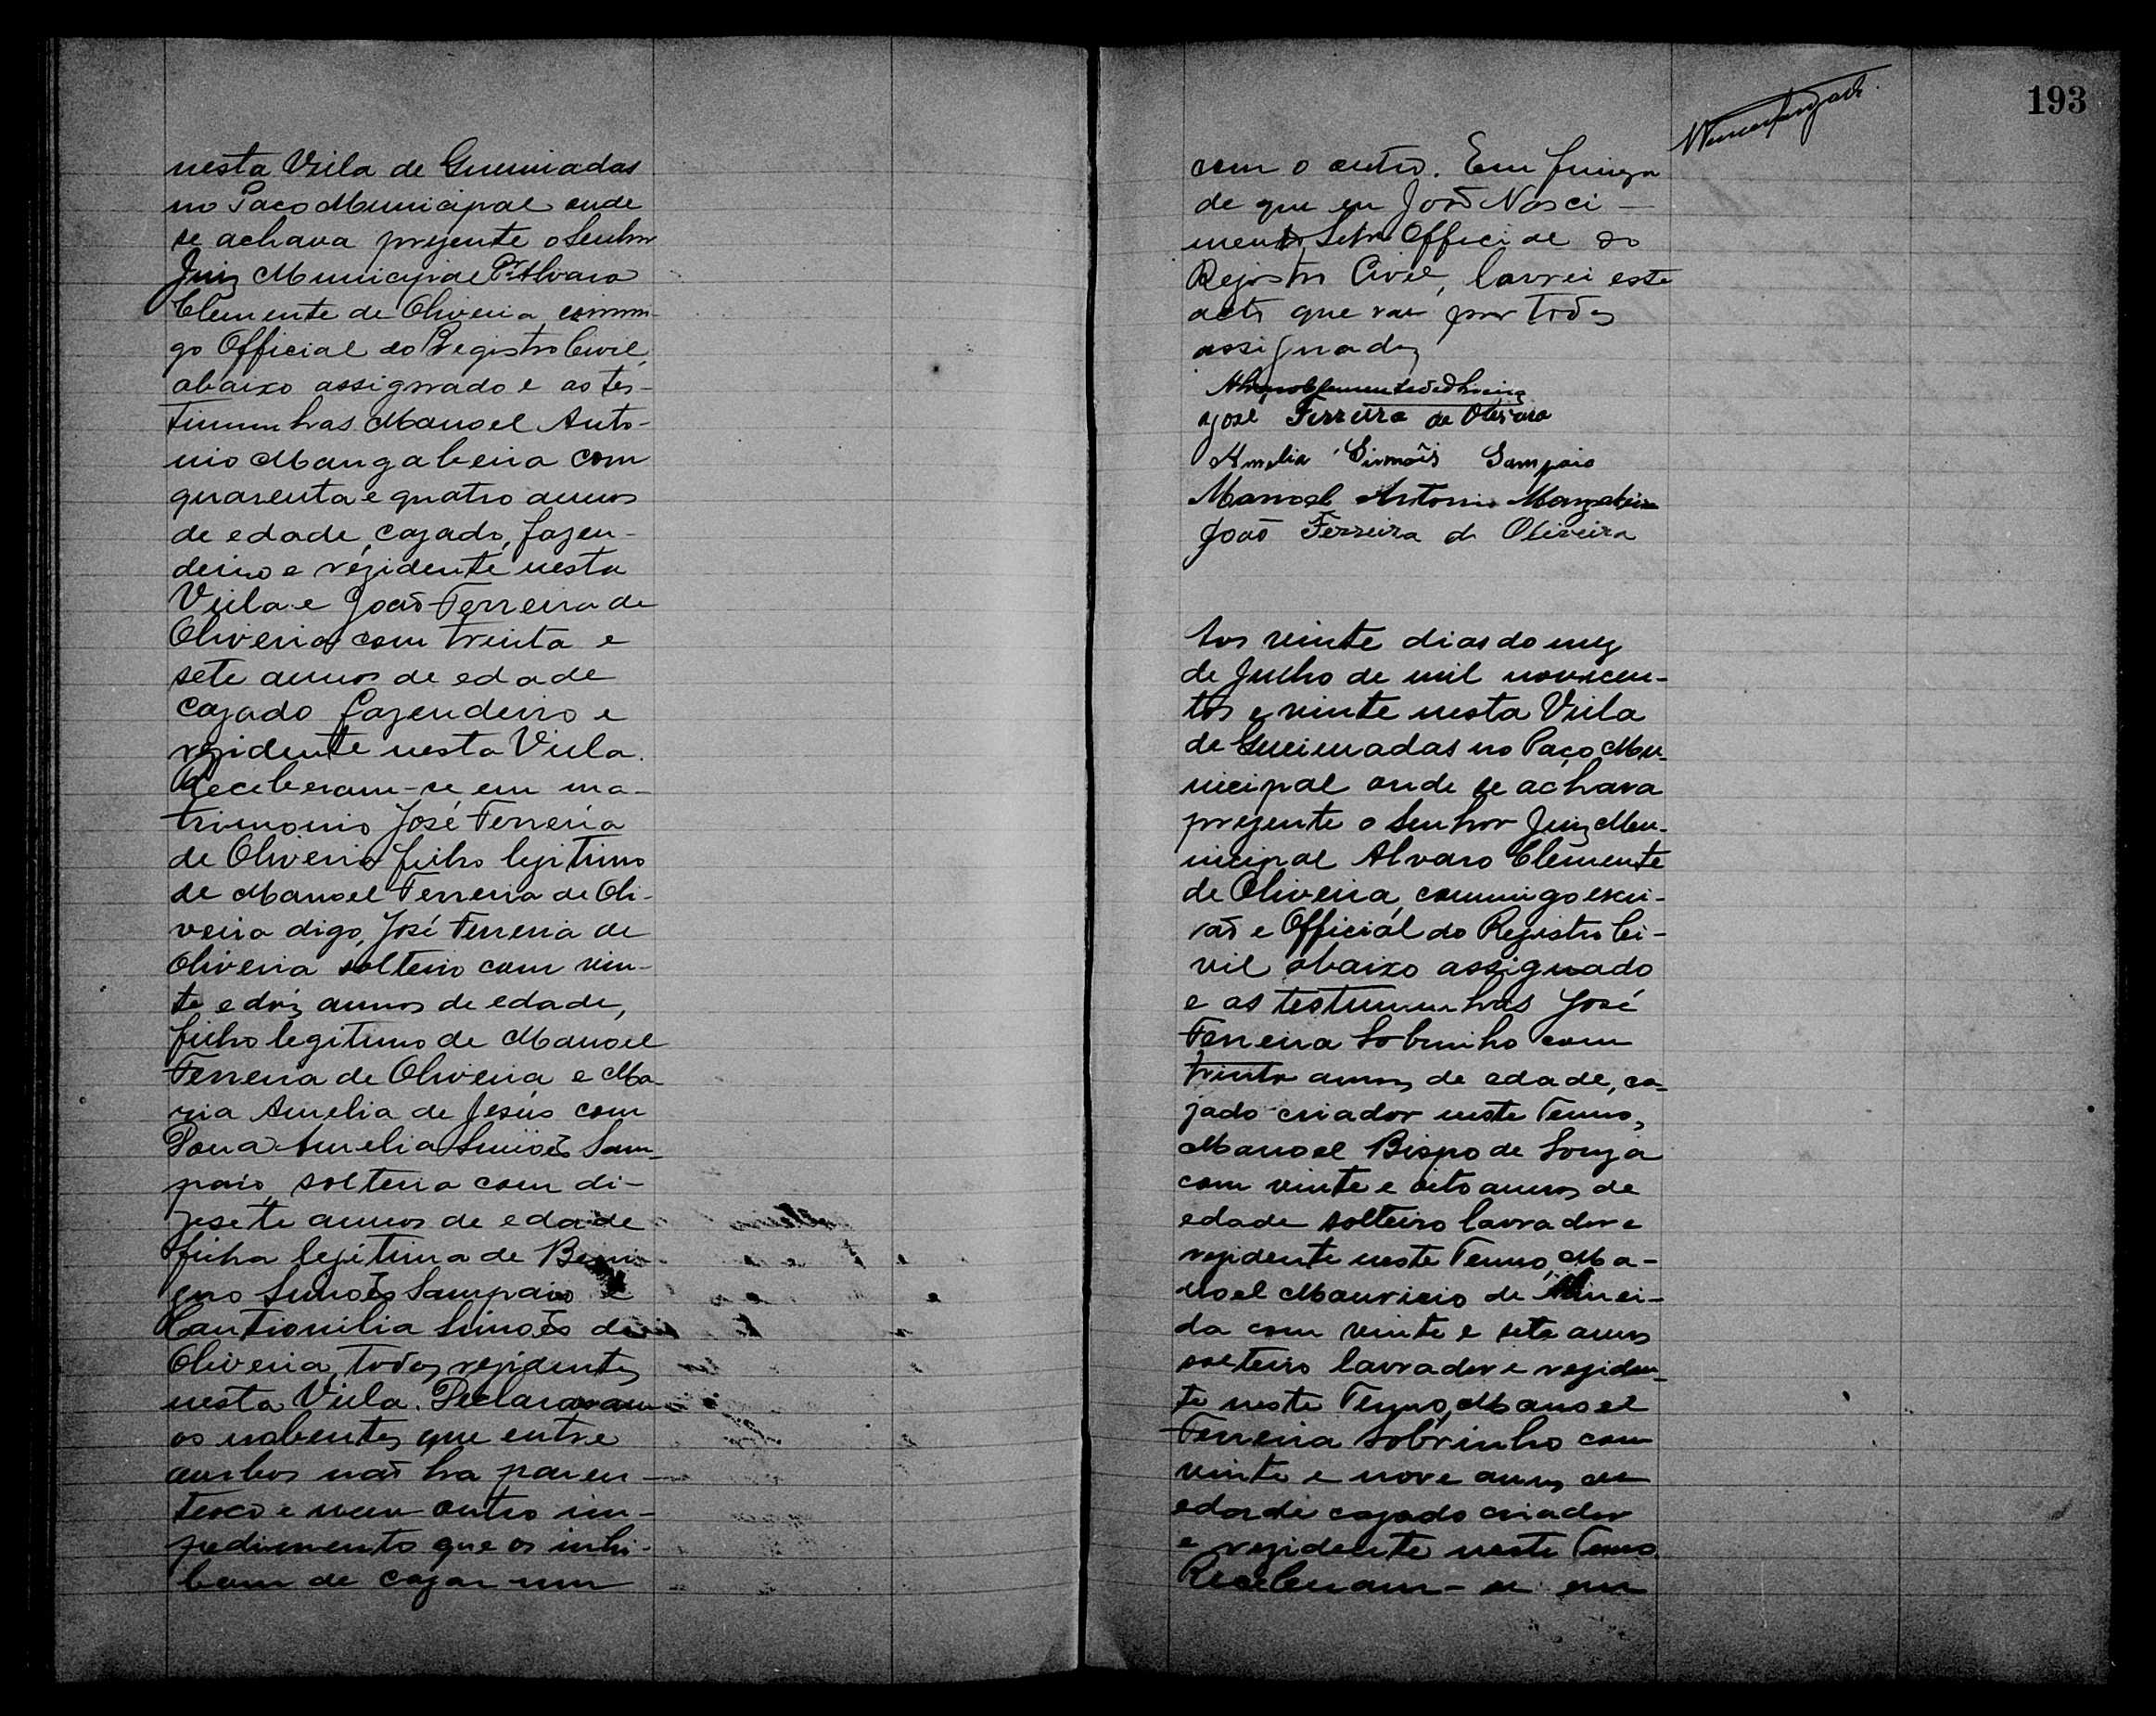 nesta Villa de Queimadas
no Paço Municipal onde
se achava prezente o Senhor
Juiz Municipal Dr. Alvaro
Clemente de Oliveira commi-
go Official do Registro Civil,
abaixo assignado e as tes-
timunhas Manoel Anto-
nio Mangabeira com
quarenta e quatro annos
de edade, cazado, fazen-
deiro e rezidente nesta
Villa e João Ferreira de
Oliveira com trinta e
sete annos de edade
cazado fazendeiro e
rezidente nesta Villa.
Receberam-se em ma-
trimonio José Ferreira
de Oliveira filho legitimo
de Manoel Ferreira de Oli-
veira digo, José Ferreira de
Oliveira solteiro com vin-
te e dois annos de edade,
filho legitimo de Manoel
Ferreira de Oliveira e Ma-
ria Amelia de Jesús com
Dona Amelia Simões Sam-
paio, solteira com di-
zesete annos de edade
filha legitima de Benig-
no Simões Sampaio e
Cantionilia Simões de
Oliveira, todos rezidentes
nesta Villa. Declararam
os nubentes que entre
ambos não ha paren-
tesco e nem outro im-
pedimento que os inhi-
bam de cazar um
193
com o outro. Em firmeza
de que eu João Nasci-
mento Official do
Registro Civil, lavrei este
acto que vae por todos
assignados
Alvaro Clemente de Oliveira
José Ferreira de Oliveira
Amelia Simões Sampaio
Manoel Antonio Mangabeira
João Ferreira de Oliveira
Aos vinte dias do mez
de Julho de mil novecen-
tos e vinte nesta Villa
de Queimadas no Paço Mu-
nicipal onde se achava
prezente o Senhor Juiz Mu-
nicipal Alvaro Clemente
de Oliveira, commigo escri-
vão e Official do Registro Ci-
vil abaixo assignado
e as testimunhas José
Ferreira Sobrinho com
trinta annos de edade, ca-
zado criador neste Termo,
Manoel Bispo de Souza
com vinte e oito annos de
edade solteiro lavrador e
rezidente neste Termo, Ma-
noel Mauricio de Almei-
da com vinte e sete annos
solteiro lavrador e reziden-
te neste Termo, Manoel
Ferreira Sobrinho com
vinte e nove annos de
edade cazado criador
e rezidente neste Termo.
Receberam-se em